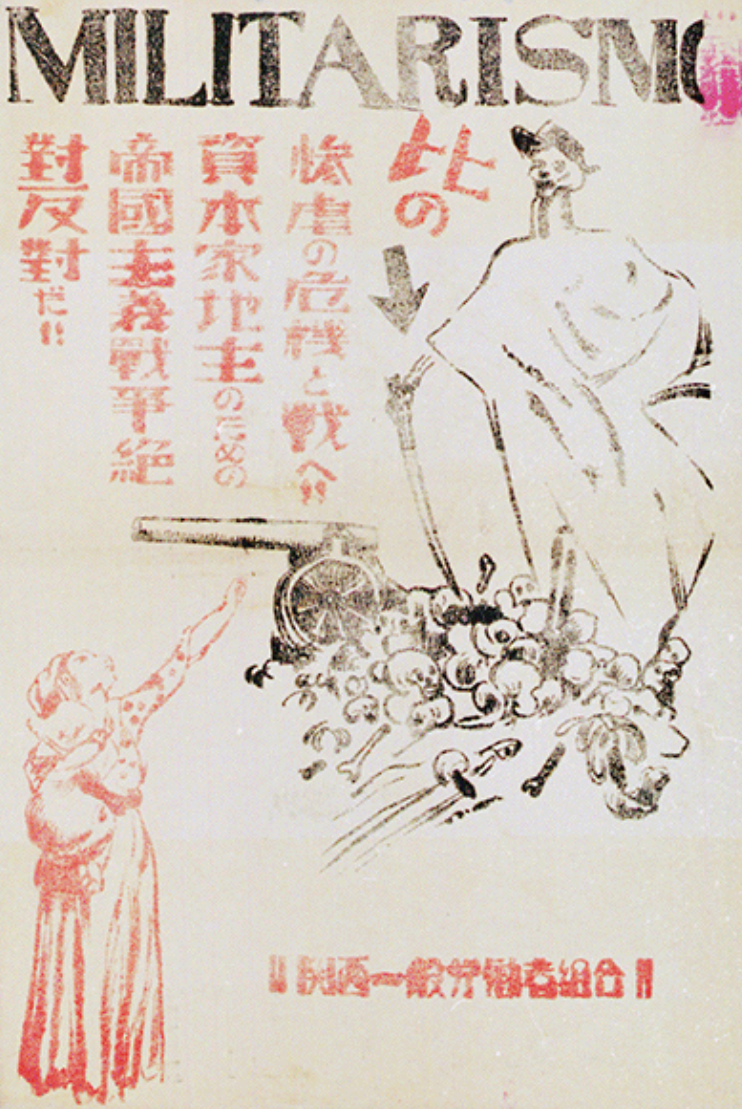 MILITARISMO
此の
惨虐の危機と戦へ!!
資本家地主のための
帝國主義戰争絶
對反對だ!!
!!関西一般労働者組合!!